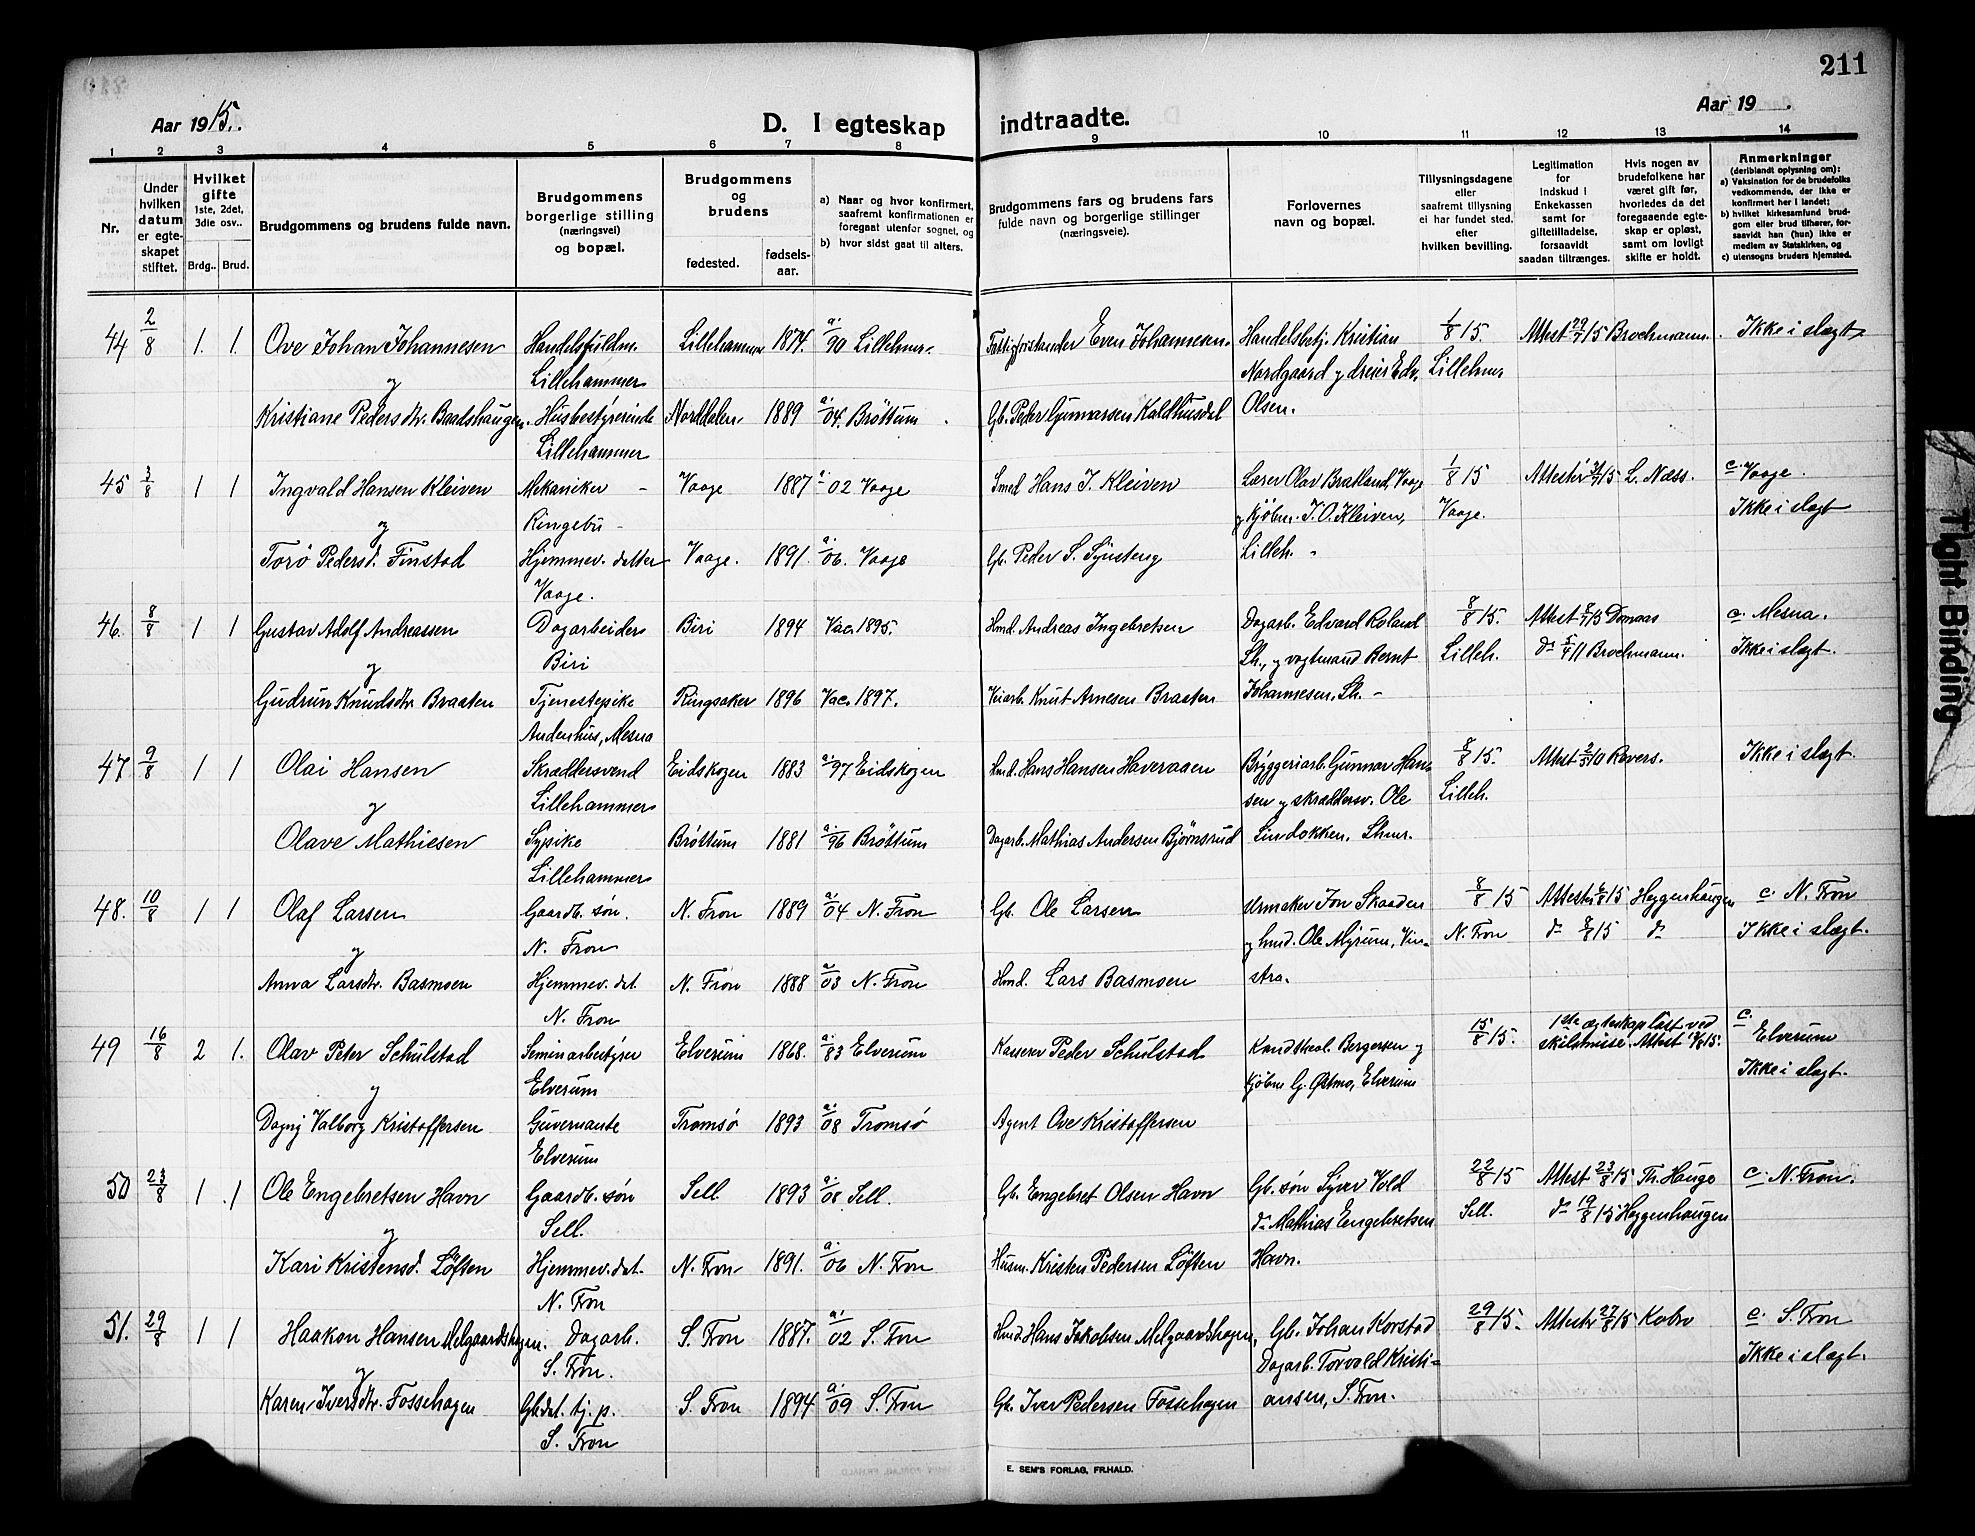 211
Aar 1915.
D. I egteskap indtraadte.
Aar 19
1 2 3 4 5 6 7 8 9 10 11 12 13 14
Nr.
Under hvilken datum er egteskapet stiftet.
Hvilket gifte 1ste, 2det, 3die osv..
Brdg.. Brud.
Brudgommens og brudens fulde navn.
Brudgommens borgerlige stilling (næringsvei) og bopæl.
Brudgommens og brudens
fødested. fødsels-aar.
a) Naar og hvor konfirmert, saafremt konfirmationen er foregaat utenfor sognet, og
b) hvor sidst gaat til alters.
Brudgommens fars og brudens fars fulde navn og borgerlige stillinger (næringsveie).
Forlovernes navn og bopæl.
Tillysningsdagene eller saafremt tillysning ei har fundet sted, efter hvilken bevilling.
Legitimation for Indskud i Enkekassen samt for giftetilladelse, forsaavidt saadan tiltrænges.
Hvis nogen av brudefolkene har været gift før, hvorledes da det foregaaende egteskap er opløst, samt om lovligt skifte er holdt.
Anmerkninger (deriblandt oplysning om):
a) Vaksination for de brudefolks vedkommende, der ikke er konfirmert her i landet;
b) hvilket kirkesamfund brudgom eller brud tilhører, forsaavidt han (hun) ikke er medlem av Statskirken, og
c) utensogns bruders hjemsted.
44 2/8 1. 1. Ove Johan Johannesen Handelsfuldm. Lillehammer Lillehammer 1874. a. 90 Lillehmr. Fattigforstander Even Johannesen. Handelsbetj. Kristian Nordgaard y dreier Edv. Olsen. 1/8 15. Lillehmr Attest 29/7 15 Brochmann. Ikke i slægt
y
Kristiane Pedersdtr. Baadshaugen. Husbestyrerinde Lillehammer Norddalen 1889 a. 04. Brøttum Gb. Peder Gunnarsen Kaldhusdal
45 3/8 1 1 Ingvald Hansen Kleiven Mekaniker Ringebu Vaage 1887 a. 02 Vaage Smed Hans J. Kleiven Lærer Olav Bratland, Vaage y kjøbm. J. O. Kleiven, Lilleh. 1/8 15 Vaage. Attester 31/7 15 L. Næss. c. Vaage. Ikke i slægt
y
Torø Pedersd. Finstad Hjemmev. datter Vaage. Vaage. 1891. a. 06. Vaage Gb. Peder S.
46. 8/8 1 1 Gustav Adolf Andreassen Dagarbeider Biri Biri 1894 Vac. 1895. Hmd. Andreas Ingebretsen Dagarb. Edvard Roland Lh., y vogtmand Bernt Johannesen, Lh. 8/8 15. Lilleh. Attest 8/7 15 Domaas do 5/4 11 Brochmann. c. Mesna. Ikke i slægt.
y
Gudrun Knudsdtr Braaten Tjenestepike Andenhus, Mesna Ringsaker 1896 Vac. 1897. Veiarb. Knut Arnesen Braaten
47 9/8 1 1 Olai Hansen Skræddersvend Lillehammer Eidskogen 1883 a. 97 Eidskogen Hmd. Hans Hansen Haveraaen Bryggeriarb. Gunnar Hansen y skræddersv. Ole Lindokken, Lhmr. 8/8 15. Lilleh. Attest 2/5 10 Ravers. Ikke i slægt.
y
Olave Mathiesen Sypike Lillehammer Brøttum 1881 a. 96 Brøttum Dagarb. Mathias Andersen Bjørnsrud
48. 10/8 1 1 Olaf Larsen Gaardb. søn. N. Fron N. Fron 1889 a. 04 N. Fron Gb. Ole Larsen Urmaker Jon Skaaden y hmd. Ole Myrum, Vinstra. 8/8 15 N. Fron Attester 6/8 15 Heggenhaugen do 8/8 15 do c. N. Fron Ikke i slægt.
y
Anna Larsdtr. Basmoen Hjemmev. dat N. Fron N. Fron 1888 a. 03 N. Fron Hmd. Lars Basmoen
49 16/8 2 1. Olav Peter Schulstad Seminarbestyrer Elverum Elverum 1868. a. 83 Elverum Kasserer Peder Schulstad Kand. theol. Bergersen y kjøbm G. Østmo, Elverum 15/8 15. 1ste ægteskap løst ved skilsmisse. Attest 14/8 15. c. Elverum Ikke i slægt.
y
Dagny Valborg Kristoffersen Guvernante Elverum Tromsø 1893 a. 08 Tromsø Agent Ove Kristoffersen
50 23/8 1 1 Ole Engebretsen Havn Gaardb. søn Sell. Sell 1893 a. 08 Sell. Gb. Engebret Olsen Havn Gb. søn Syver Vold do Mathias Engebretsen Havn. 22/8 15 Sell. Attest 23/8 15 Th. Hauge do 19/8 15 Heggenhaugen c. N. Fron.
y
Kari Kristensd. Løften Hjemmev. dat. N. Fron N. Fron 1891. a. 06 N. Fron Husm. Kristen Pedersen Løften
51. 29/8 1 1 Haakon Hansen Melgaardshagen. Dagarb. S. Fron. S. Fron 1887. a. 02 S. Fron Hmd. Hans Jakobsen Melgaardshagen, Gb. Johan Korstad Dagarb. Torvald Kristiansen, S. Fron. 29/8 15. Attester 27/8 15 Kobro c. S. Fron Ikke i slægt.
y
Karen Iversdtr. Fossehagen Gb. dat. tj. p. S. Fron S. Fron 1894 a. 09 S. Fron Gb. Iver Pedersen Fossehagen
E. SEM'S FORLAG, FR.HALD.
Tight Binding